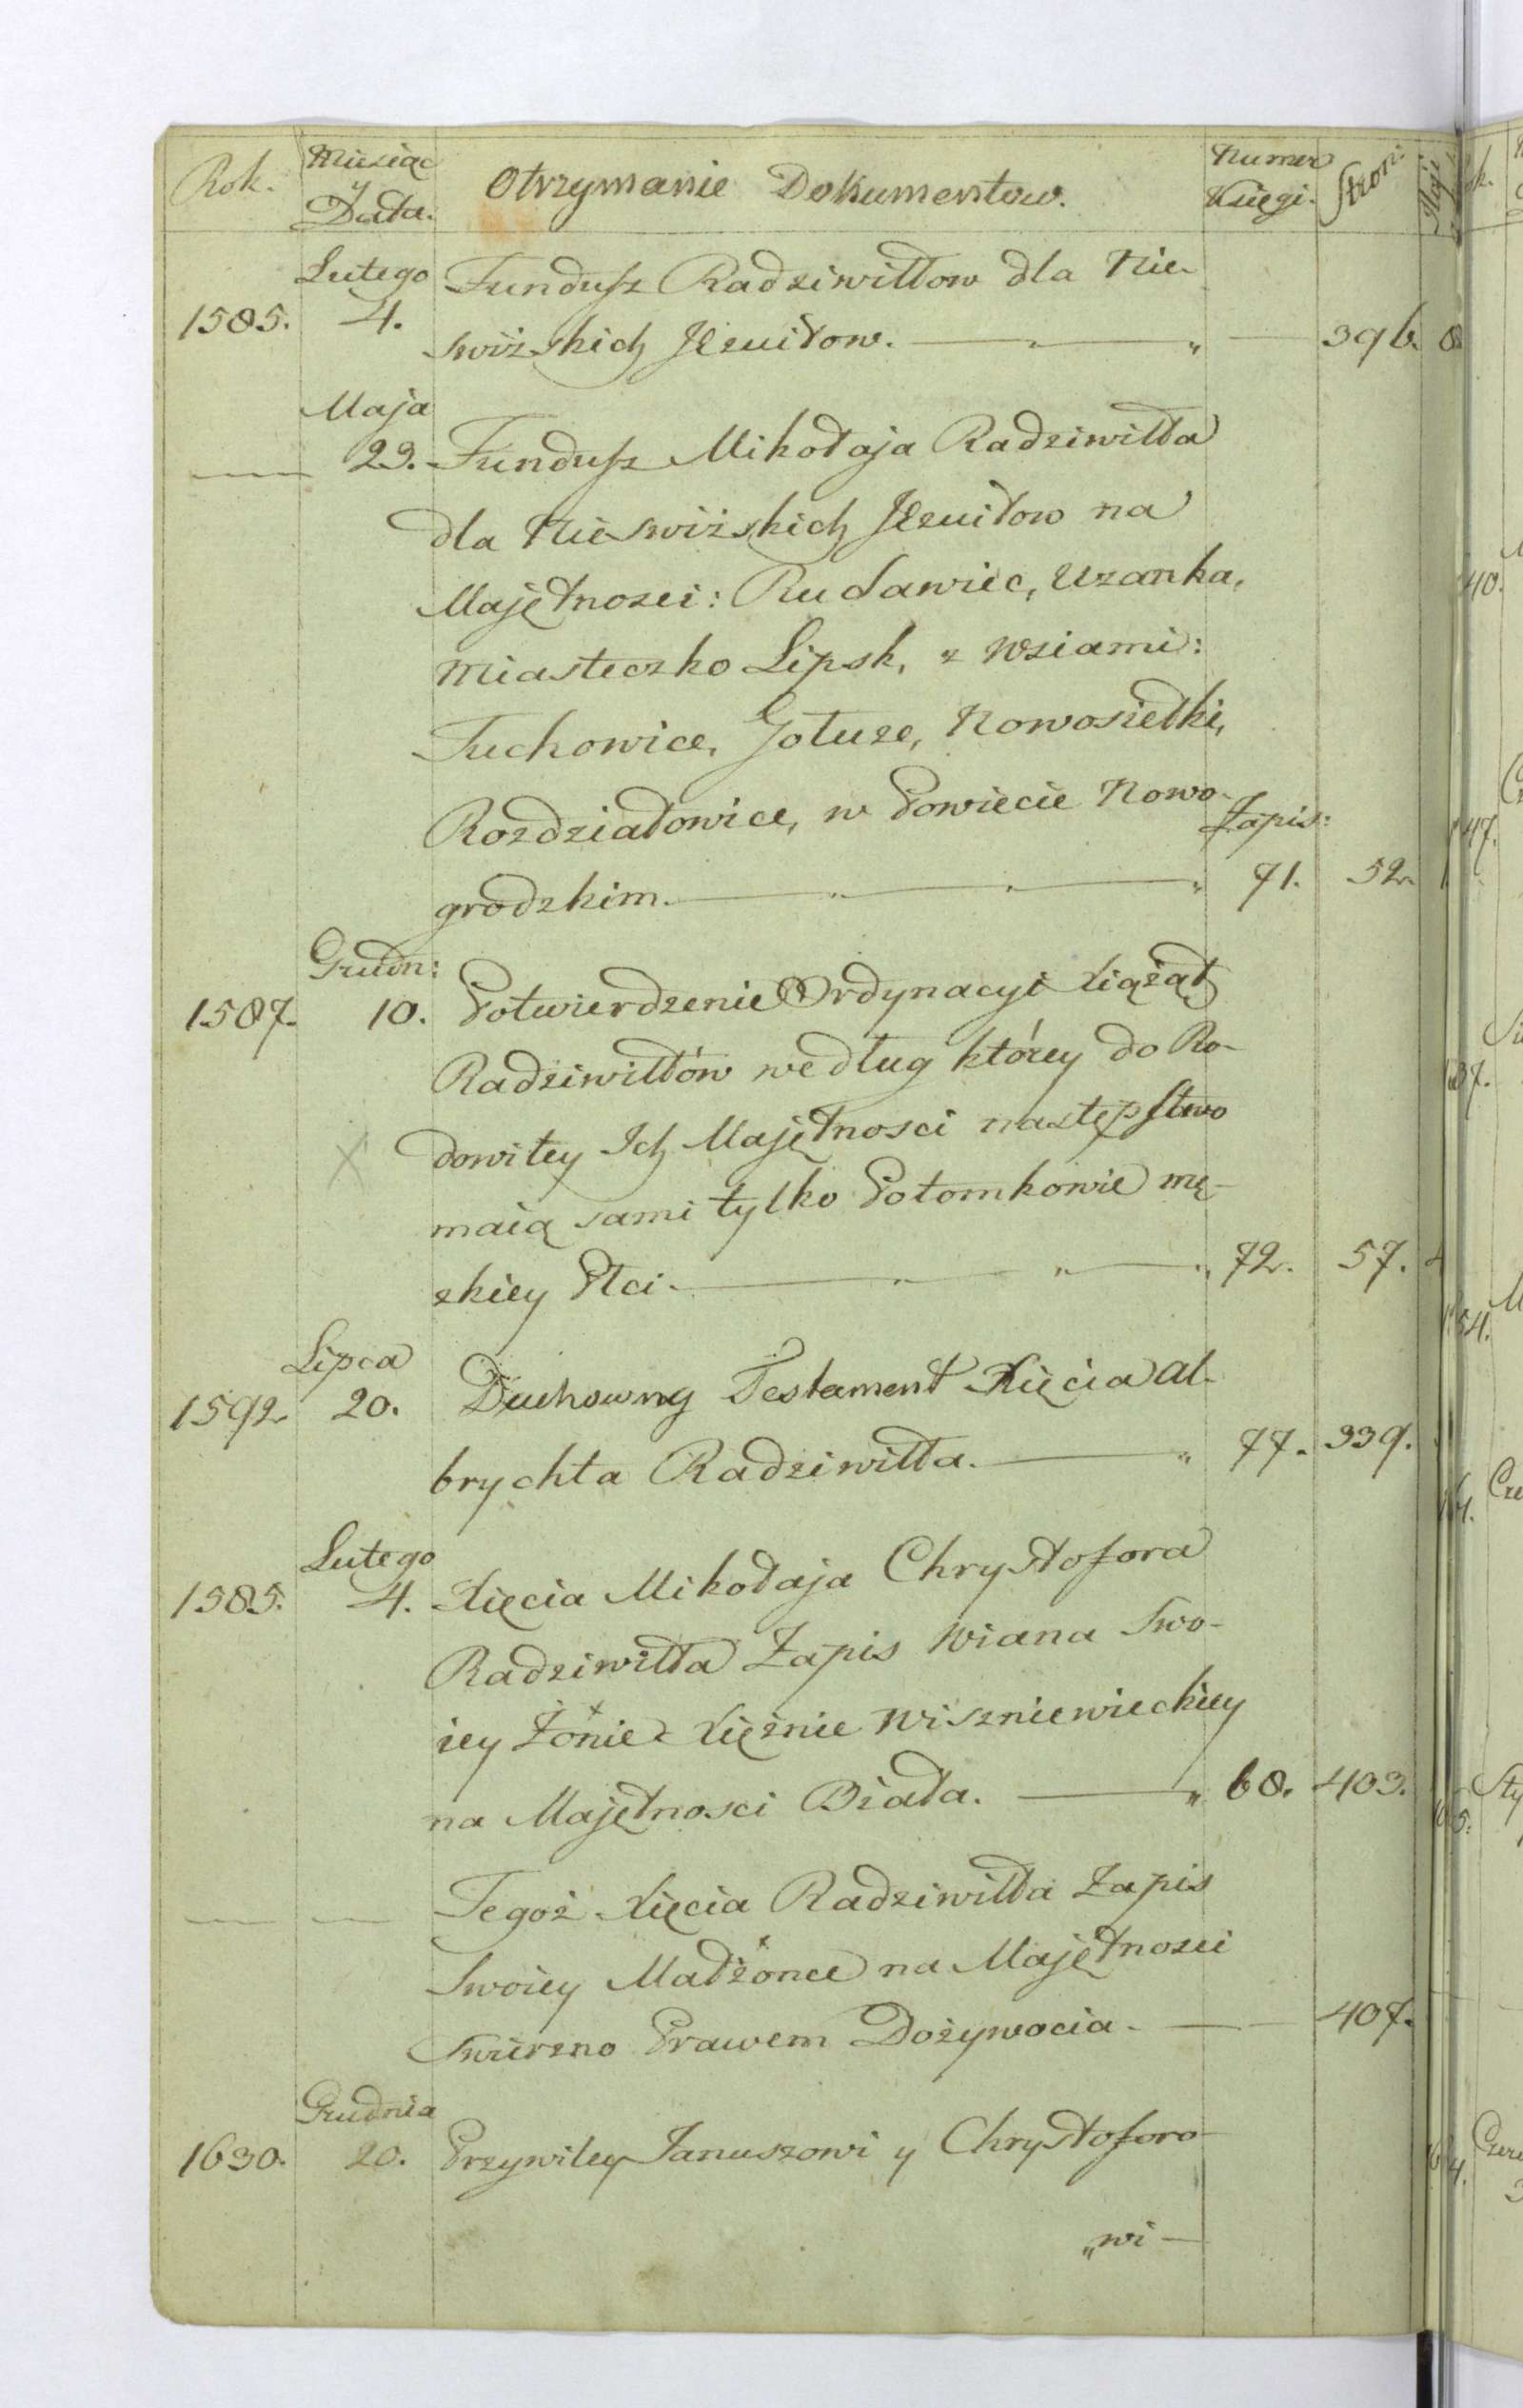 Rok. Miesiąc y Data. Otrzymanie Dokumentow. Numer Księgi. Stron:
Lutego
1585. 4. Fundusz Radziwiłłow dla Nie-
swiżskich Jezuitow. 396.
Maja
29. Fundusz Mikołaja Radziwiłła
dla Nieswiżskich Jezuitow na
Majętnosci: Rudawiec, Uzanka,
Miasteczko Lipsk, z Wsiami:
Tuchowice, Jotuze, Nowosiełki,
Rozdziałowice, w Powiecie Nowo-
Zapis:
grodzkim. 71. 52.
Grudn:
1587. 10. Potwierdzenie Ordynacyi Xiążąt
Radziwiłłów według którey do Ro-
dowitey Ich Majętnosci następstwo
maią sami tylko Potomkowie mę-
zkiey Płci. 72. 57.
Lipca
1592 20. Duchowny Testament Xięcia Al-
brychta Radziwiłła. 77. 339.
Lutego
1585. 4. Xięcia Mikołaja Chrystofora
Radziwiłła Zapis Wiana Swo-
iey Żonie Xiężnie Wiszniewieckiey
na Majętnosci Biała. 68. 403.
Tegoż Xięcia Radziwiłła Zapis
Swoiey Małżonce na Majętnosci
Swierzno Prawem Dożywocia. 407.
Grudnia
1630. 20. Przywiley Januszowi y Chrystoforo-
„wi